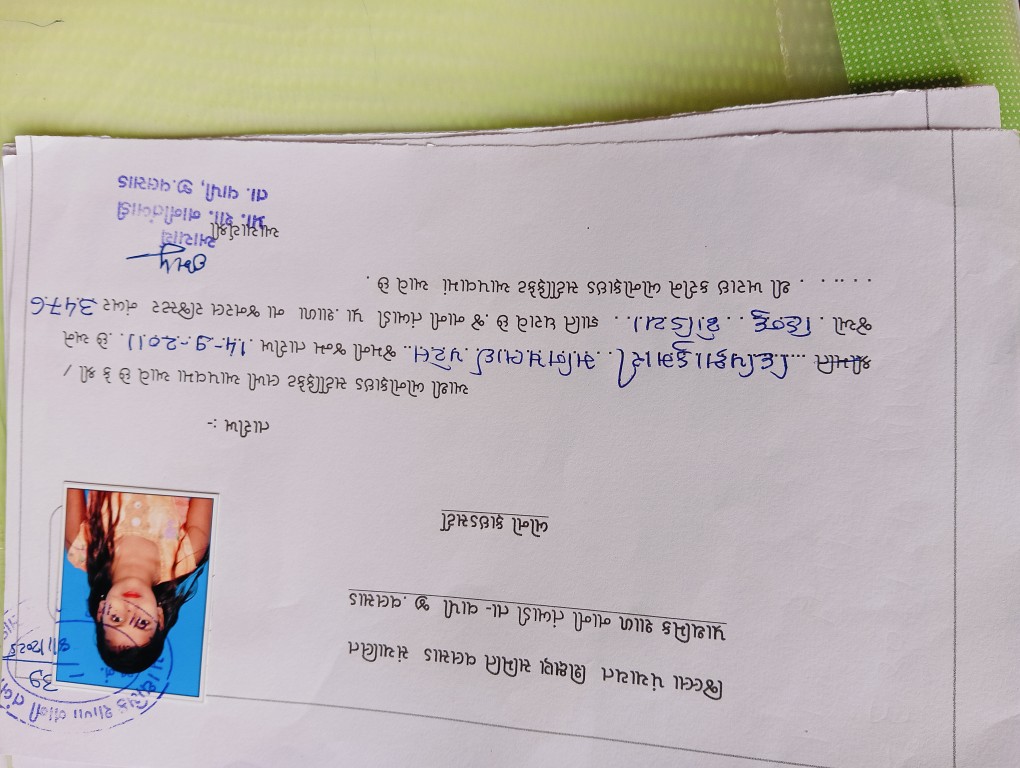 જિલ્લા પંચાયત શિક્ષણ સમિતિ વલસાડ સંચાલિત
પ્રાથમિક શાળા નાની તંબાડી તા- વાપી જી. વલસાડ
બોનો ફાઇડસર્ટી
તારીખ :-
આથી બોનોફાઇડ સર્ટીફીકેટ લખી આપવામાં આવે છે કે શ્રી /
શ્રીમતિ .... દિપિકાકુમારી .. અનિલભાઈ. પટેલ.. જેમની જન્મ તારીખ . 14-9-2011 . છે અને
જેઓ . હિન્દુ . . ધોડિયા . . જ્ઞાતિ ધરાવે છે. જે નાની તંબાડી પ્રા .શાળા ના જનરલ રજિસ્ટર નંબર 3476
. . ... . . શ્રી ખરાઇ કરીને બોનોફાઇડ સર્ટીફિકેટ આપવામાં આવે છે .
આચાર્યશ્રી
આચાર્ય
પ્રા. શા. નાનીતંબાડી
તા. વાપી, જી.વલસાડ
39